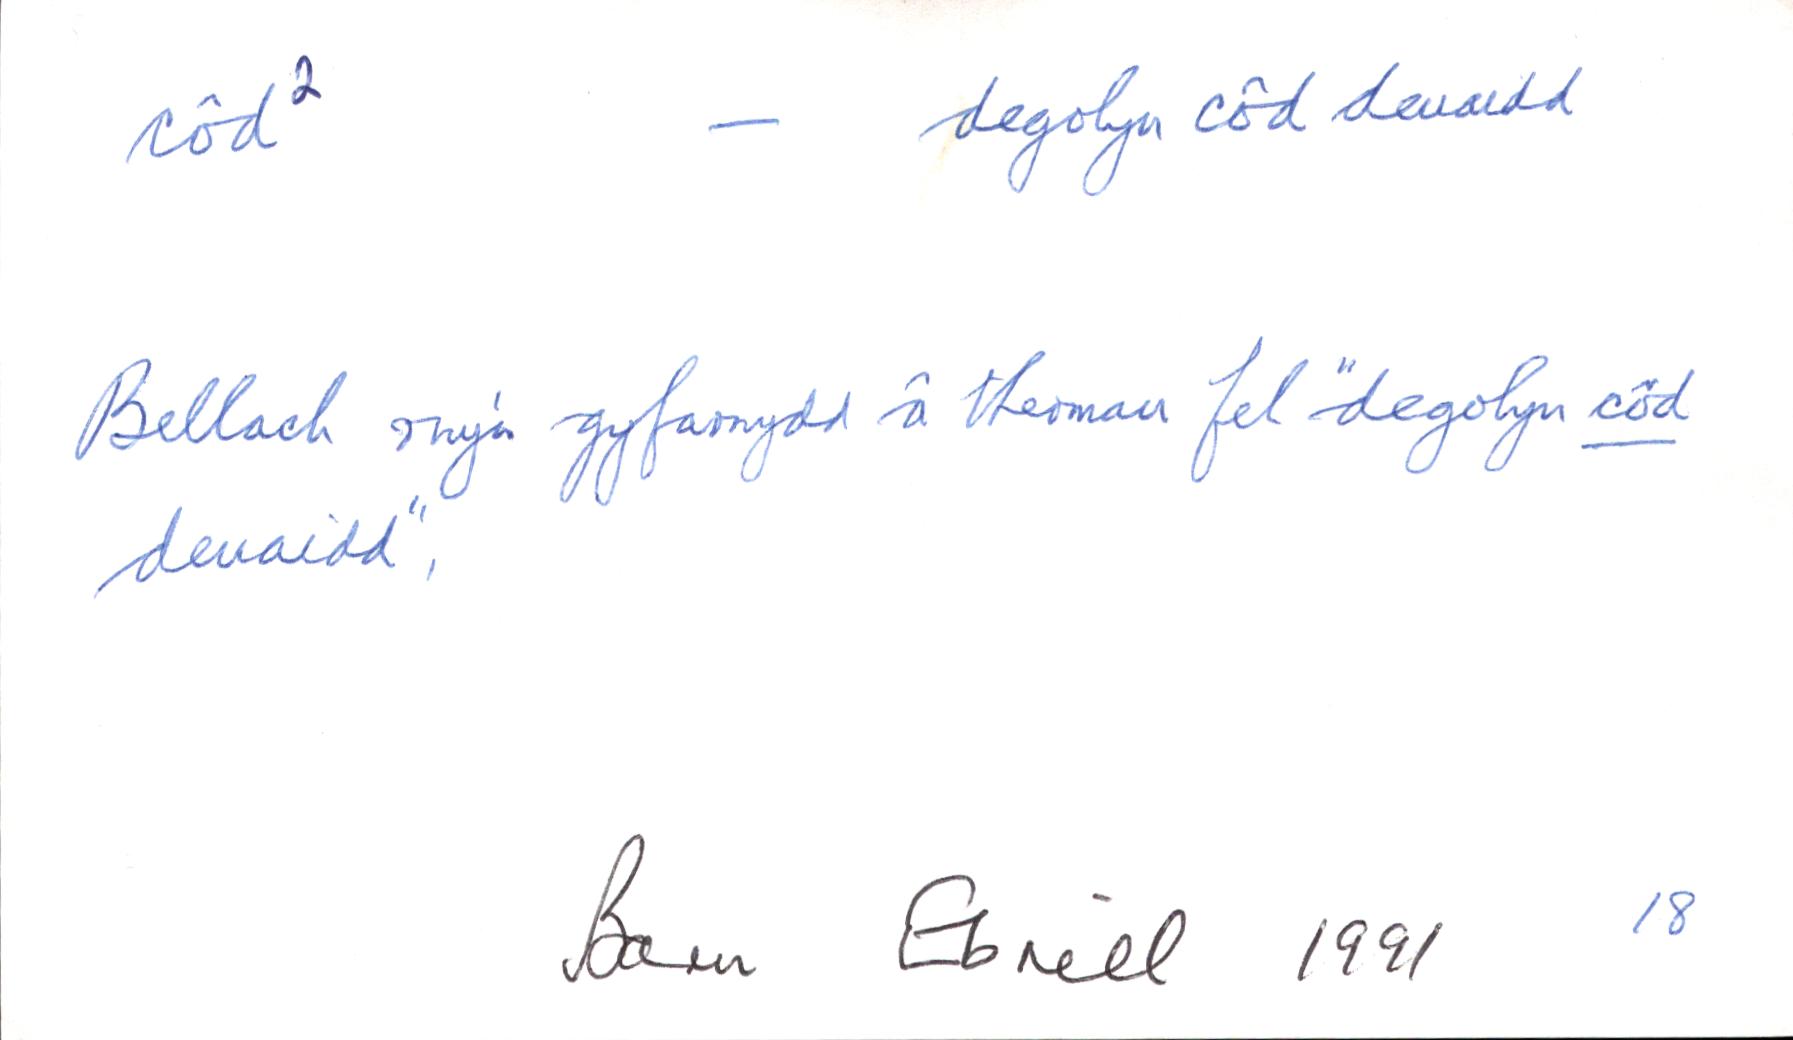 côd² — degolyn côd deuaidd
Bellach rwy'n gyfarwydd â thermau fel "degolyn côd
deuaidd",
Barn Ebrill 1991 18